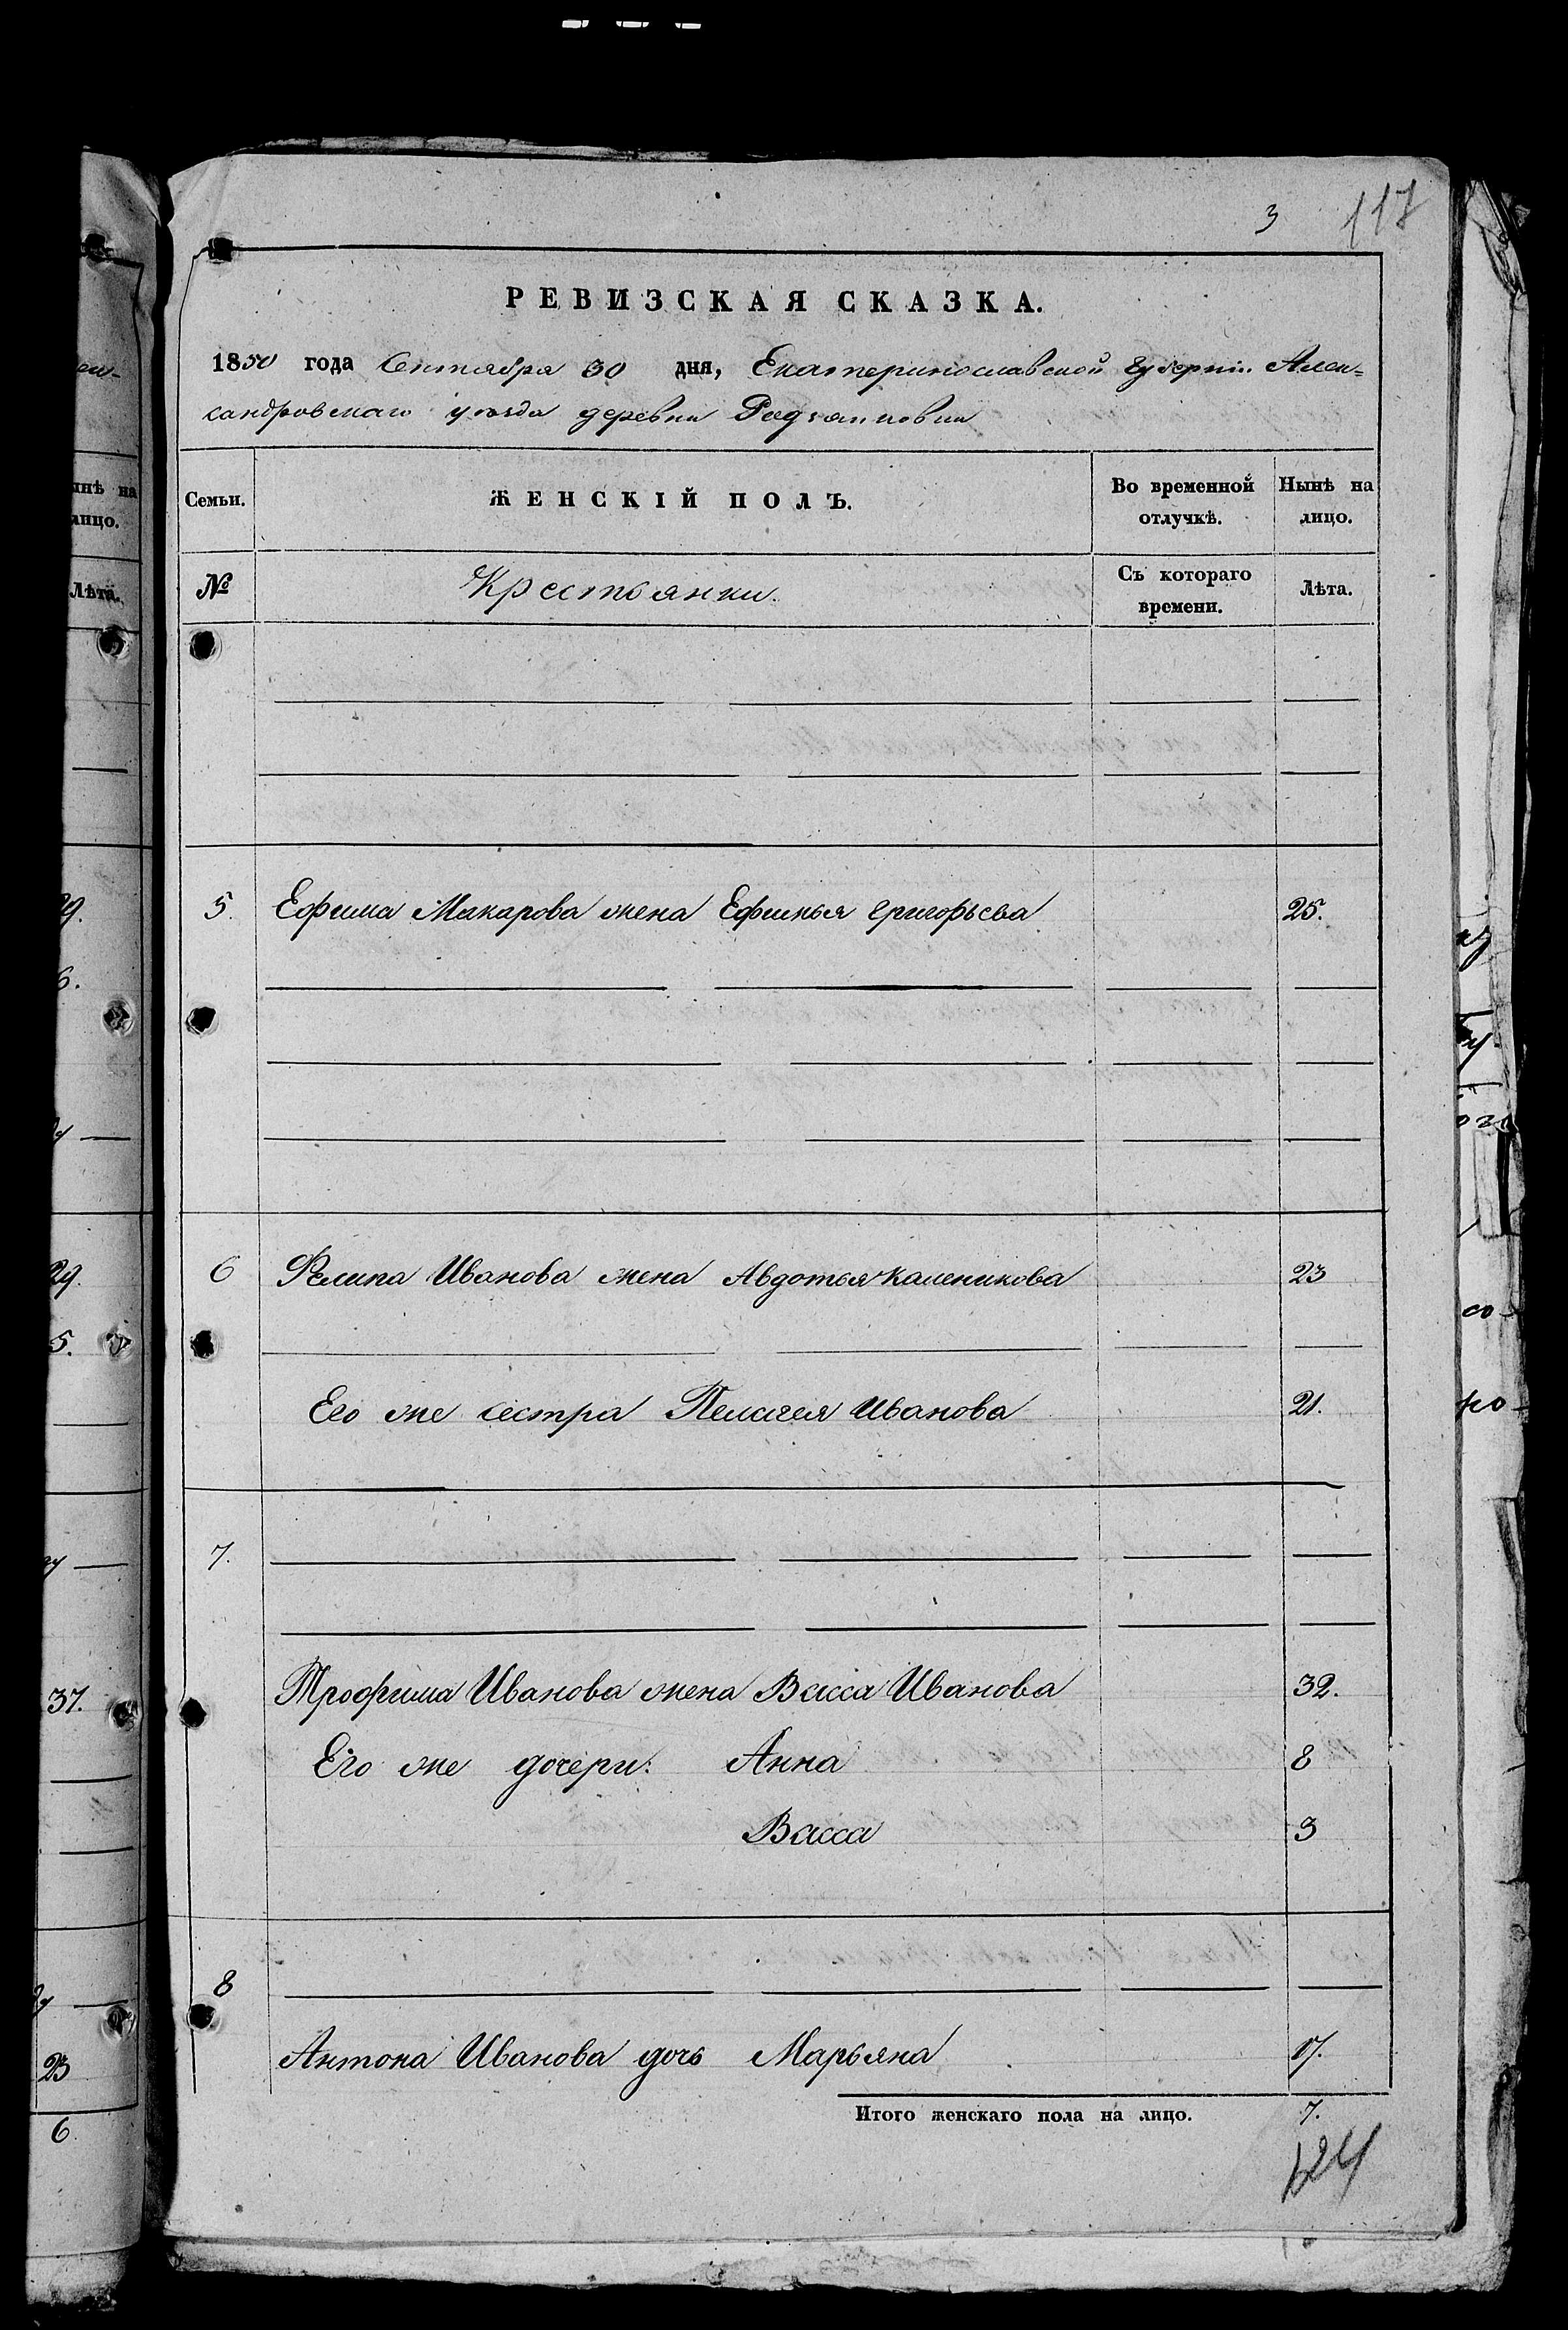 3 117
РЕВИЗСКАЯ СКАЗКА.
1850 года Сентября 30 дня, Екатеринославской Губерніи Алек=
сандровскаго уезда деревни
Семьи. ЖЕНСКІЙ ПОЛЪ. Во временной отлучкѣ. Нынѣ на лицо.
№ Крестьянки. Съ котораго времени. Лѣта.
5. Ефима Макарова жена Ефимья Григорьева 25.
6 Филипа Иванова жена Авдотья Каленикова 23
Его же сестра Пелагея Иванова 21.
7.
Трофима Иванова жена Васса Иванова 32.
Его же дочери: Анна 8
Васса 3
8
Антона Иванова дочь Марьяна 17.
Итого женскаго пола на лицо. 7.